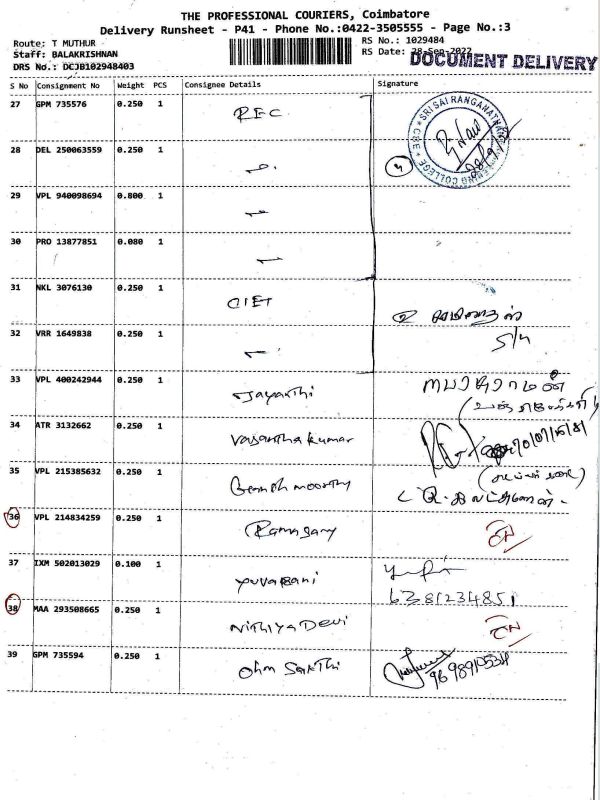 THE PROFESSIONAL COURIERS, Coimbatore
Delivery Runsheet - P41 - Phone No.:0422-3505555 - Page No.:3
Route: T MUTHUR
RS No.: 1029484
Staff: BALAKRISHNAN
RS Date: 28-Sep-2022
DOCUMENT DELIVERY
DRS No.: DCJB102948403
S No Consignment No Weight PCS Consignee Details Signature
27 GPM 735576 0.250 1 REC
SRI SAI RANGANATHAN ENGINEERING COLLEGE * CBE *
28 DEL 250063559 0.250 1
4
29 VPL 940098694 0.800 1
30 PRO 13877851 0.080 1
31 NKL 3076130 0.250 1 CIET
32 VRR 1649838 0.250 1
S/n
33 VPL 400242944 0.250 1 Jayanthi
34 ATR 3132662 0.250 1 Vasantha kumar
35 VPL 215385632 0.250 1
36 VPL 214834259 0.250 1 Ramasamy
37 IXM 502013029 0.100 1 Yuvarani
6381234851
38 MAA 293508665 0.250 1 Nithiya Devi
39 GPM 735594 0.250 1 Ohm Sakthi